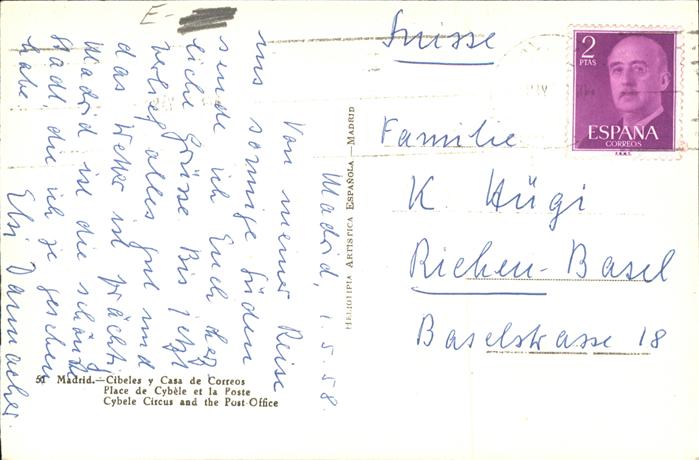 E-
Suisse
2
PTAS
ESPAÑA
CORREOS
F.N.M.T.
Familie
K. Hügi
Riehen-Basel
Baselstrasse 18
HELIOTIPIA ARTISTICA ESPAÑOLA — MADRID
Madrid, 1.5.58.
Von meiner Reise
ins sonnige Süden
sende ich Euch herz
liche Grüsse. Bis jetzt
verlief alles gut und
das Wetter ist prächtig
Madrid ist die schönste
Stadt, die ich je gesehen
habe.
Elsi Danacher.
51 Madrid.—Cibeles y Casa de Correos
Place de Cybèle et la Poste
Cybele Circus and the Post-Office